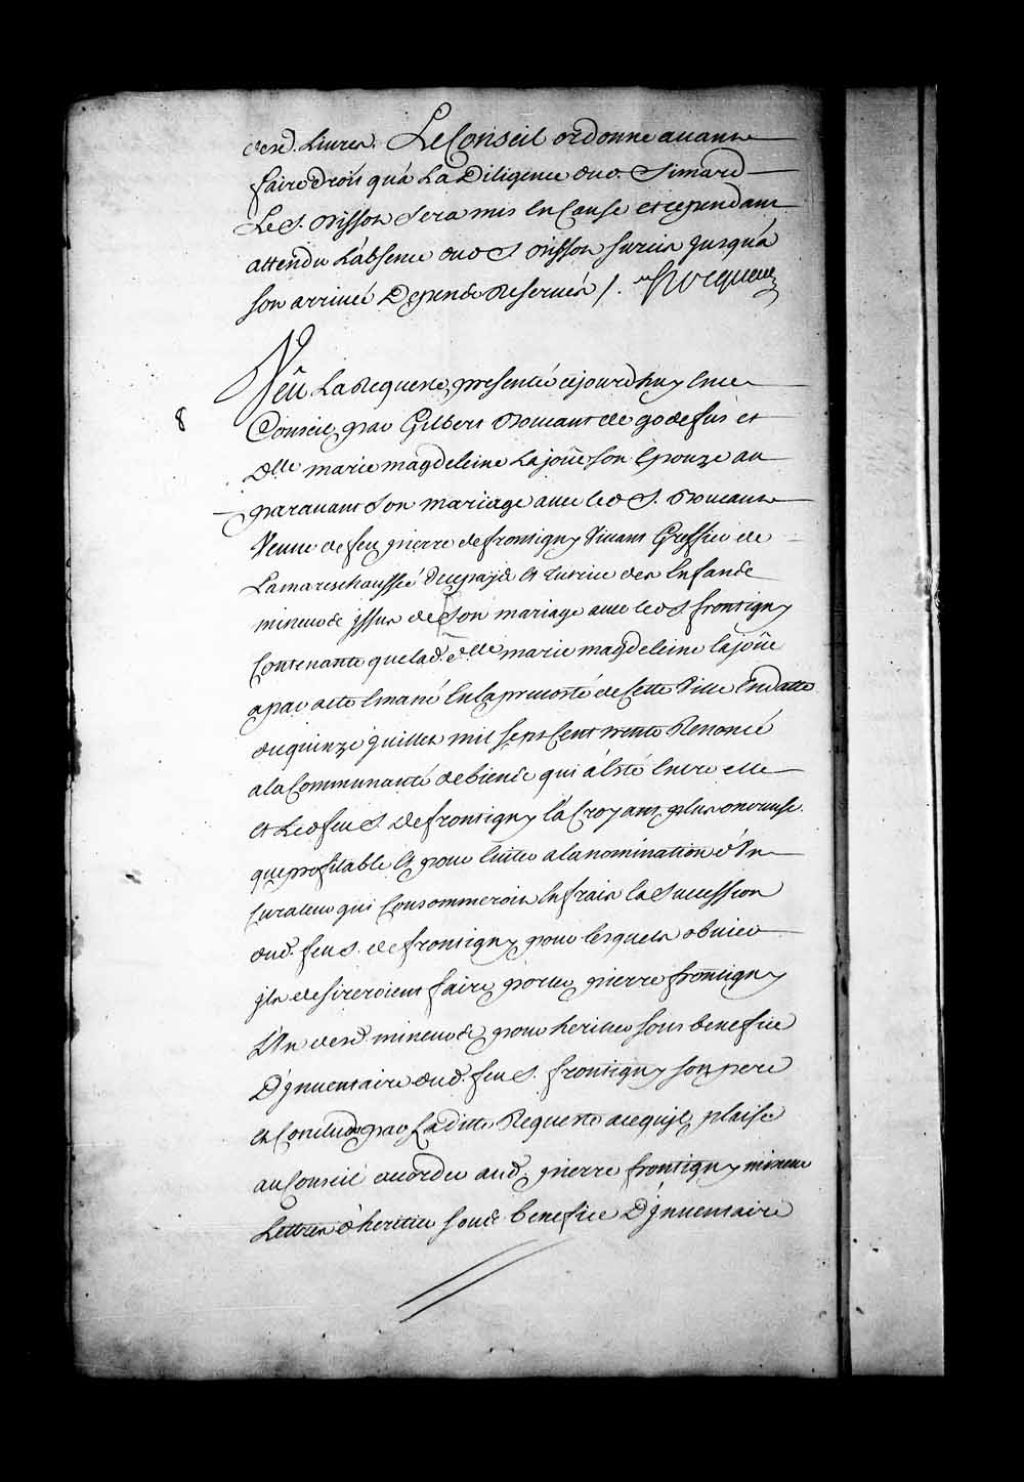 desd. Livres. Le Conseil ordonne auant
faire droit qu'a La Diligence dud. Simard
Le S. Brisson Sera mis En Cause et cependant
attendu L'absence dud S Brisson surcis jusqu'a
son arrivée Depends Reservés /. Hocquart
Veu La Requeste presentée cejourdhuy En ce
8
Conseil par Gilbert Boucaut de godefus et
Dlle marie magdeleine Lajoüe son Epouze au
parauant Son mariage auec led S. Boucault
Veuue de feu pierre de frontigny Viuant Greffier de
La mareschaussée de ce pays Et tutrice des Enfands
mineurs jssus de Son mariage auec led S frontigny
Contenante que lad. dlle marie magdeleine lajoüe
a par acte Emané En la preuosté de Cette Ville En datte
du quinze juillet mil sept Cent trente Renoncé
a la Communauté de biends qui a Esté Entre elle
et Led feu S. De frontigny la Croyant plus onereuse
que profitable Et pour Euiter a la nomination d'Un
Curateur qui Consommeroit En frais la Succession
dud. feu S. de frontigny pour lesquels obuier
jls desireroient faire porter pierre frontigny
L'Un desd. mineurs pour heritier sous benefice
D'jnuentaire dud. feu S. frontigny son pere
Et Conclud par La ditte Requeste a ce qu'jl plaise
au Conseil accorder aud. pierre frontigny mineur
Lettres d'heritier sous benefice D'jnuentaire